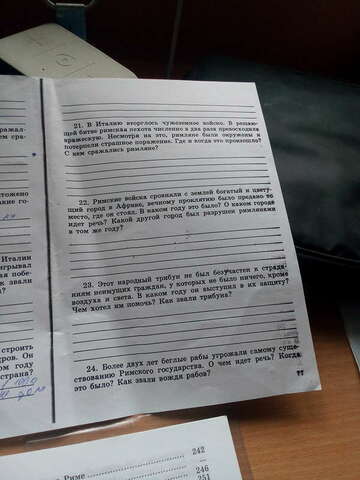 21. В Италию вторглось чужеземное войско. В решаю-
щей битве римская пехота численно в два раза превосходила
вражескую. Несмотря на это, римляне были окружены и
потерпели страшное поражение. Где и когда это произошло?
С кем сражались римляне?
22. Римские войска сровняли с землей богатый и цвету-
щий город в Африке, вечному проклятию было предано то
место, где он стоял. В каком году это было? О каком городе
идет речь? Какой другой город был разрушен римлянами
в том же году?
23. Этот народный трибун не был безучастен к страда-
ниям неимущих граждан, у которых не было ничего, кроме
воздуха и света. В каком году он выступил в их защиту?
Чем хотел им помочь? Как звали трибуна?
24. Более двух лет беглые рабы угрожали самому суще-
ствованию Римского государства. О чем идет речь? Когда
это было? Как звали вождя рабов?
77
чтожено
кие го-
Италии
игрывал
ая побе-
к звали
строить
дров. Он
ком году
страна?
242
в Риме
246
251